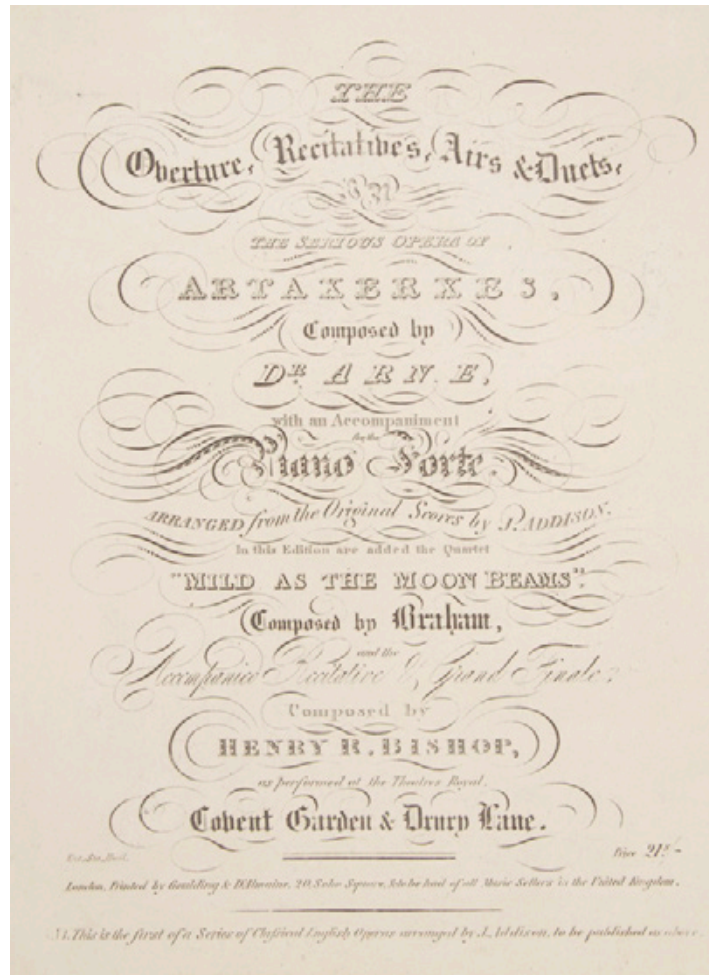 THE
Overture, Recitatives, Airs & Duets,
in
THE SERIOUS OPERA OF
ARTAXERXES,
Composed by
DR. ARNE,
with an Accompaniment
for the
Piano Forte.
ARRANGED from the Original Scores by J. ADDISON.
In this Edition are added the Quartet
"MILD AS THE MOON BEAMS".
Composed by Braham,
and the
Accompanied Recitative & Grand Finale;
Composed by
HENRY R. BISHOP,
as performed at the Theatres Royal,
Covent Garden & Drury Lane.
Ent. Sta. Hall. Price 21s/-
London, Printed by Goulding & D'Almaine, 20, Soho Square, & to be had of all Music Sellers in the United Kingdom.
This is the first of a Series of Classical English Operas arranged by J. Addison, to be published as above.